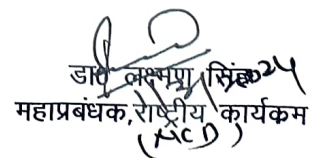 डा० लक्ष्मण सिंह
महाप्रबंधक, राष्ट्रीय कार्यकम
(NCD)